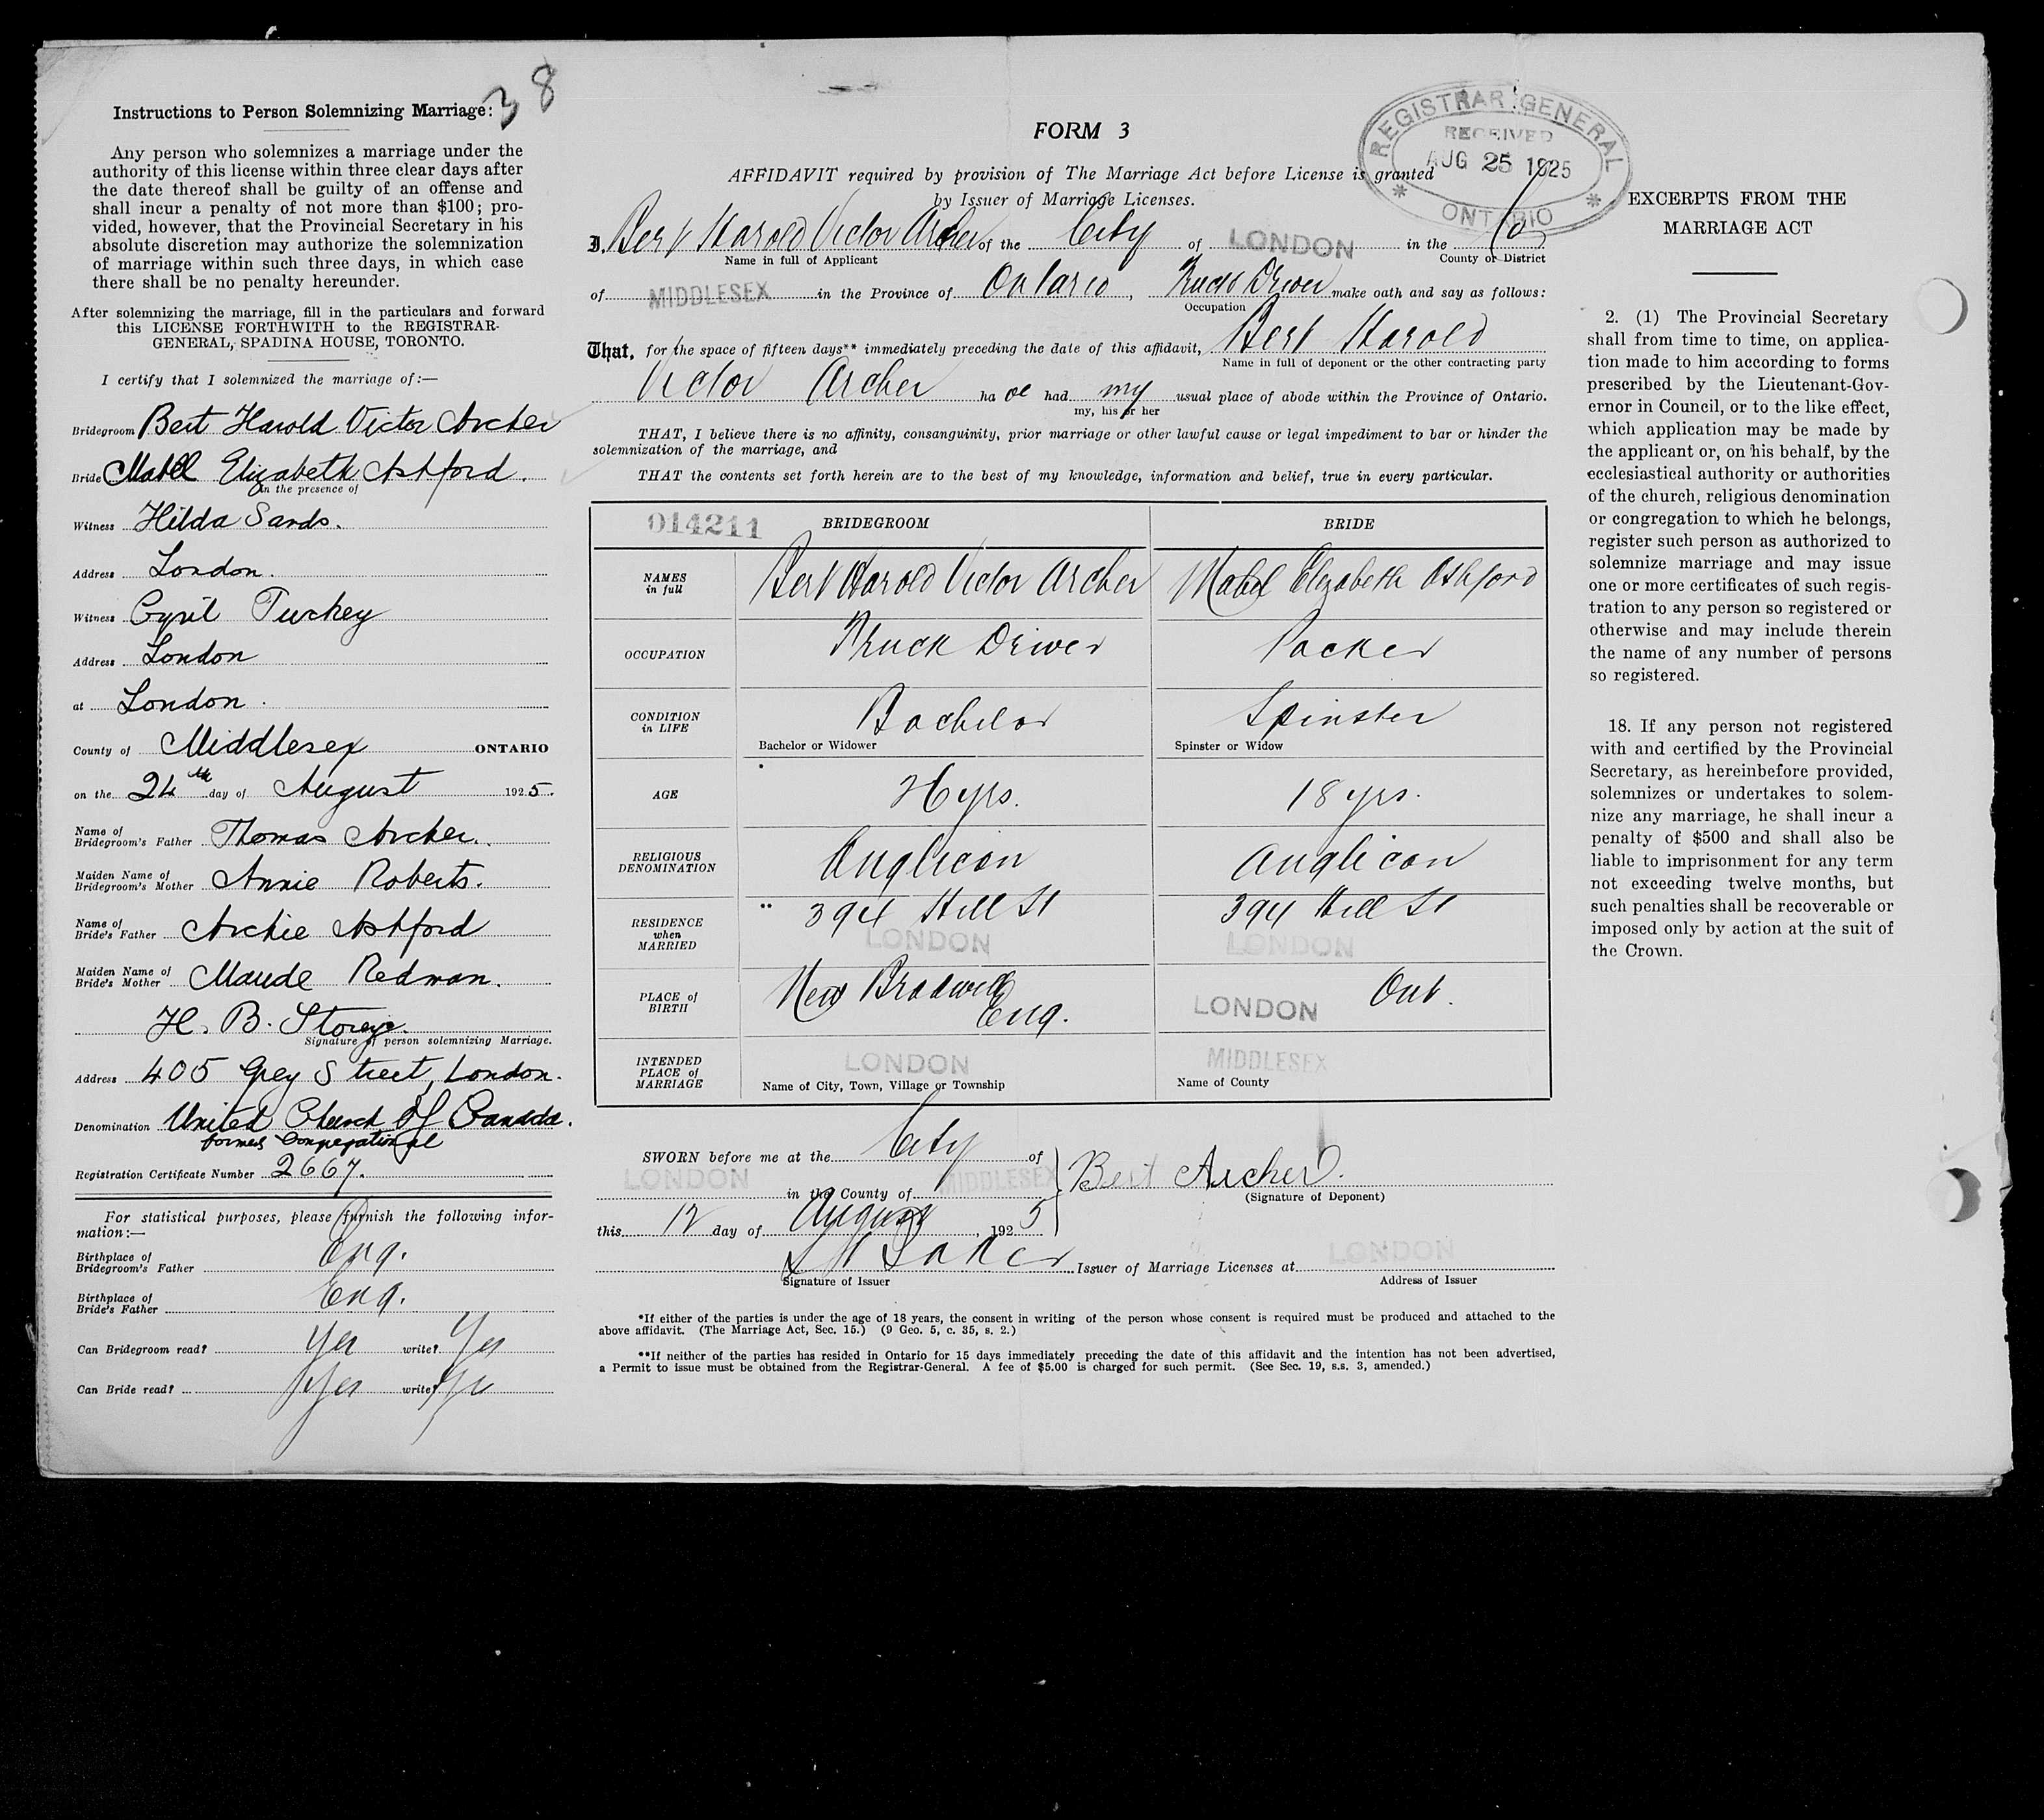 38
Instructions to Person Solemnizing Marriage:
Any person who solemnizes a marriage under the
authority of this license within three clear days after
the date thereof shall be guilty of an offense and
shall incur a penalty of not more than $100; pro-
vided, however, that the Provincial Secretary in his
absolute discretion may authorize the solemnization
of marriage within such three days, in which case
there shall be no penalty hereunder.
After solemnizing the marriage, fill in the particulars and forward
this LICENSE FORTHWITH to the REGISTRAR-
GENERAL, SPADINA HOUSE, TORONTO.
I certify that I solemnized the marriage of:—
Bridegroom Bert Harold Victor Archer
Bride Mabel Elizabeth Ashford.
in the presence of
Witness Hilda Sands.
Address London.
Witness Cyril Tuckey
Address London
at London.
County of Middlesex ONTARIO
on the 24th day of August 1925.
Name of
Bridegroom's Father Thomas Archer.
Maiden Name of
Bridegroom's Mother Annie Roberts.
Name of
Bride's Father Archie Ashford
Maiden Name of
Bride's Mother Maude Redman.
H. B. Storey.
Signature of person solemnizing Marriage.
Address 405 Grey Street, London.
Denomination United Church of Canada.
former Congregational
Registration Certificate Number 2667.
For statistical purposes, please furnish the following infor-
mation:—
Birthplace of
Bridegroom's Father Eng.
Birthplace of
Bride's Father Eng.
Can Bridegroom read? Yes write? Yes
Can Bride read? Yes write? Yes
FORM 3
REGISTRAR GENERAL
RECEIVED
AUG 25 1925
ONTARIO
AFFIDAVIT required by provision of The Marriage Act before License is granted
by Issuer of Marriage Licenses.
I, Bert Harold Victor Archer of the City of LONDON in the Co
Name in full of Applicant County or District
of MIDDLESEX in the Province of Ontario, Truck Driver make oath and say as follows:
Occupation
That, for the space of fifteen days** immediately preceding the date of this affidavit, Bert Harold
Name in full of deponent or the other contracting party
Victor Archer ha ve had my usual place of abode within the Province of Ontario.
my, his or her
THAT, I believe there is no affinity, consanguinity, prior marriage or other lawful cause or legal impediment to bar or hinder the
solemnization of the marriage, and
THAT the contents set forth herein are to the best of my knowledge, information and belief, true in every particular.
014211 BRIDEGROOM BRIDE
NAMES
in full Bert Harold Victor Archer Mabel Elizabeth Ashford
OCCUPATION Truck Driver Packer
CONDITION
in LIFE Bachelor Spinster
Bachelor or Widower Spinster or Widow
AGE yrs. 18 yrs.
RELIGIOUS
DENOMINATION Anglican Anglican
RESIDENCE
when
MARRIED 394 Hill St 394 Hill St
LONDON LONDON
PLACE of
BIRTH New Bradwell Eng. LONDON Ont.
INTENDED
PLACE of
MARRIAGE LONDON MIDDLESEX
Name of City, Town, Village or Township Name of County
SWORN before me at the City of
LONDON in the County of MIDDLESEX Bert Archer.
(Signature of Deponent)
this 12 day of August, 1925
Issuer of Marriage Licenses at LONDON
Signature of Issuer Address of Issuer
*If either of the parties is under the age of 18 years, the consent in writing of the person whose consent is required must be produced and attached to the
above affidavit. (The Marriage Act, Sec. 15.) (9 Geo. 5, c. 35, s. 2.)
**If neither of the parties has resided in Ontario for 15 days immediately preceding the date of this affidavit and the intention has not been advertised,
a Permit to issue must be obtained from the Registrar-General. A fee of $5.00 is charged for such permit. (See Sec. 19, s.s. 3, amended.)
EXCERPTS FROM THE
MARRIAGE ACT
2. (1) The Provincial Secretary
shall from time to time, on applica-
tion made to him according to forms
prescribed by the Lieutenant-Gov-
ernor in Council, or to the like effect,
which application may be made by
the applicant or, on his behalf, by the
ecclesiastical authority or authorities
of the church, religious denomination
or congregation to which he belongs,
register such person as authorized to
solemnize marriage and may issue
one or more certificates of such regis-
tration to any person so registered or
otherwise and may include therein
the name of any number of persons
so registered.
18. If any person not registered
with and certified by the Provincial
Secretary, as hereinbefore provided,
solemnizes or undertakes to solem-
nize any marriage, he shall incur a
penalty of $500 and shall also be
liable to imprisonment for any term
not exceeding twelve months, but
such penalties shall be recoverable or
imposed only by action at the suit of
the Crown.